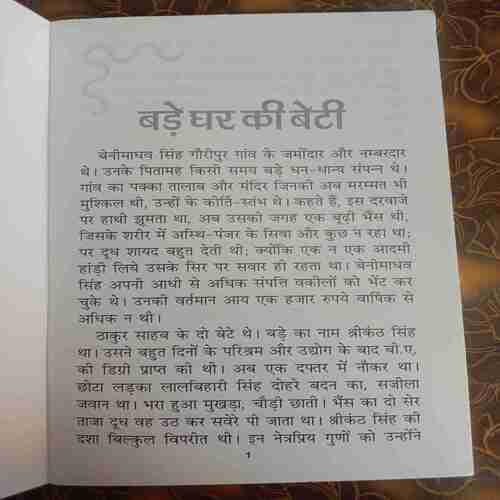 बड़े घर की बेटी
बेनीमाधव सिंह गौरीपुर गांव के जमींदार और नम्बरदार
थे। उनके पितामह किसी समय बड़े धन-धान्य संपन्न थे।
गांव का पक्का तालाब और मंदिर जिनकी अब मरम्मत भी
मुश्किल थी, उन्हीं के कीर्ति-स्तंभ थे। कहते हैं, इस दरवाजे
पर हाथी झूमता था, अब उसकी जगह एक बूढ़ी भैंस थी,
जिसके शरीर में अस्थि-पंजर के सिवा और कुछ न रहा था;
पर दूध शायद बहुत देती थी; क्योंकि एक न एक आदमी
हांड़ी लिये उसके सिर पर सवार ही रहता था। बेनीमाधव
सिंह अपनी आधी से अधिक संपत्ति वकीलों को भेंट कर
चुके थे। उनकी वर्तमान आय एक हजार रुपये वार्षिक से
अधिक न थी।
ठाकुर साहब के दो बेटे थे। बड़े का नाम श्रीकंठ सिंह
था। उसने बहुत दिनों के परिश्रम और उद्योग के बाद बी.ए.
की डिग्री प्राप्त की थी। अब एक दफ्तर में नौकर था।
छोटा लड़का लालबिहारी सिंह दोहरे बदन का, सजीला
जवान था। भरा हुआ मुखड़ा, चौड़ी छाती। भैंस का दो सेर
ताजा दूध वह उठ कर सवेरे पी जाता था। श्रीकंठ सिंह की
दशा बिल्कुल विपरीत थी। इन नेत्रप्रिय गुणों को उन्होंने
1